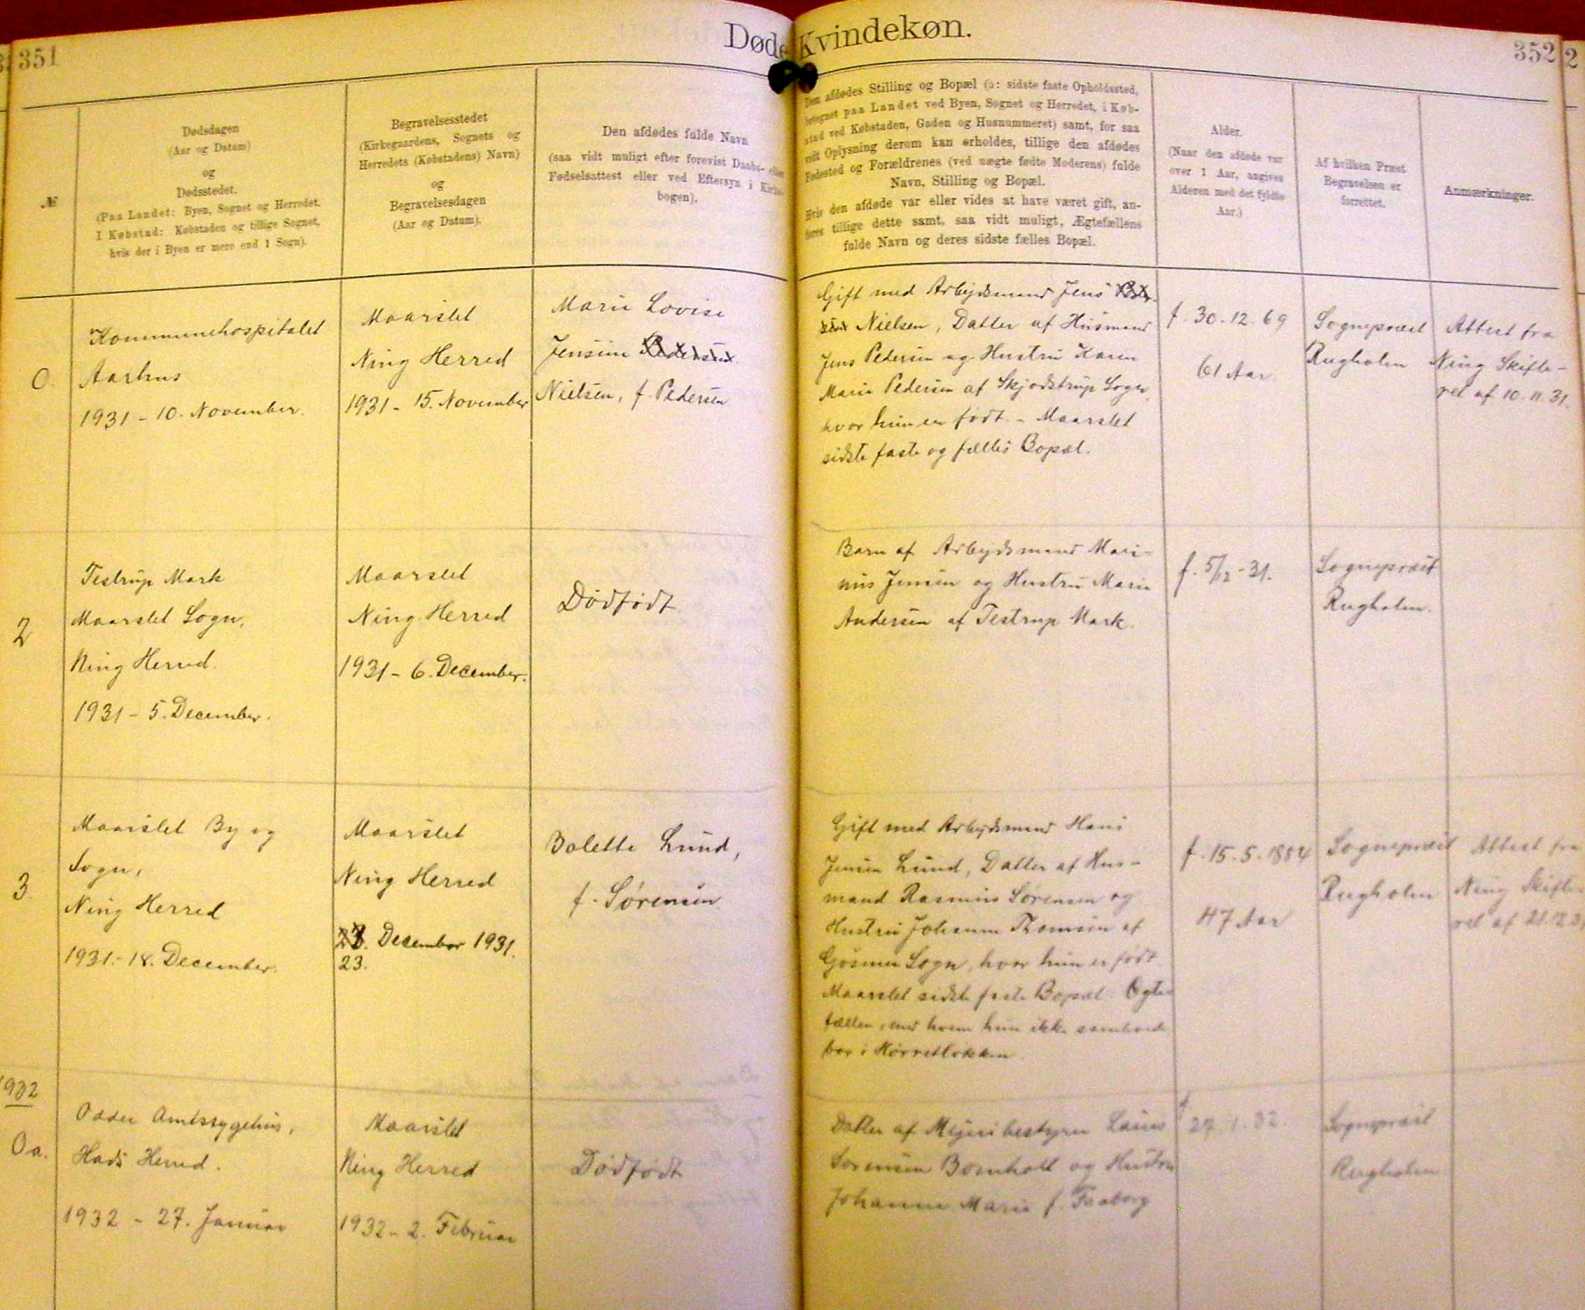 351
Døde Kvindekøn.
352
2
№
Dødsdagen
(Aar og Datum)
og
Dødsstedet.
(Paa Landet: Byen, Sognet og Herredet.
I Købstad: Købstaden og tillige Sognet,
hvis der i Byen er mere end 1 Sogn).
Begravelsesstedet
(Kirkegaardens, Sognets og
Herredets (Købstadens) Navn)
og
Begravelsesdagen
(Aar og Datum).
Den afdødes fulde Navn
(saa vidt muligt efter forevist Daabs- eller
Fødselsattest eller ved Eftersyn i Kirke-
bogen).
Den afdødes Stilling og Bopæl (ɔ: sidste faste Opholdssted,
betegnet paa Landet ved Byen, Sognet og Herredet, i Køb-
stad ved Købstaden, Gaden og Husnummeret) samt, for saa
vidt Oplysning derom kan erholdes, tillige den afdødes
Fødested og Forældrenes (ved uægte fødte Moderens) fulde
Navn, Stilling og Bopæl.
Hvis den afdøde var eller vides at have været gift, an-
føres tillige dette samt, saa vidt muligt, Ægtefællens
fulde Navn og deres sidste fælles Bopæl.
Alder.
(Naar den afdøde var
over 1 Aar, angives
Alderen med det fyldte
Aar.)
Af hvilken Præst
Begravelsen er
forrettet.
Anmærkninger.
0.
Kommunehospitalet
Aarhus
1931 - 10. November.
Maarslet
Ning Herred
1931 - 15. November
Marie Lovise
Jensine Pedersen
Nielsen, f. Pedersen
Gift med Arbejdsmand Jens
Nielsen, Datter af Husmand
Jens Pedersen og Hustru Karen
Marie Pedersen af Skjødstrup Sogn,
hvor hun er født. - Maarslet
sidste faste og fælles Bopæl.
f. 30.12.69
61 Aar
Sognepræst
Rugholm
Attest fra
Ning Skifte-
ret af 10.11.31.
2
Testrup Mark
Maarslet Sogn,
Ning Herred.
1931 - 5. December.
Maarslet
Ning Herred
1931 - 6. December.
Dødfødt
Barn af Arbejdsmand Mari-
nus Jensen og Hustru Marie
Andersen af Testrup Mark.
f. 5/12 - 31.
Sognepræst
Rugholm.
3.
Maarslet By og
Sogn,
Ning Herred
1931 - 18. December.
Maarslet
Ning Herred
December 1931.
23.
Bolette Lund,
f. Sørensen
Gift med Arbejdsmand Hans
Jensen Lund, Datter af Hus-
mand Rasmus Sørensen og
Hustru Johanne Thomsen af
Gosmer Sogn, hvor hun er født.
Maarslet sidste faste Bopæl. Ægte-
fællen, med hvem hun ikke samboede
bor i Hørretløkken
f. 15.5.1884
47 Aar
Sognepræst
Rugholm
Attest fra
Ning Skifte-
ret af 21.12.31
1932
0a.
Odder Amtssygehus,
Hads Herred.
1932 - 27. Januar
Maarslet
Ning Herred
1932 - 2. Februar
Dødfødt
Datter af Mejeribestyrer Laurs
Sørensen Bomholt og Hustru
Johanne Marie f. Faaborg
f
27.1.32.
Sognepræst
Rugholm